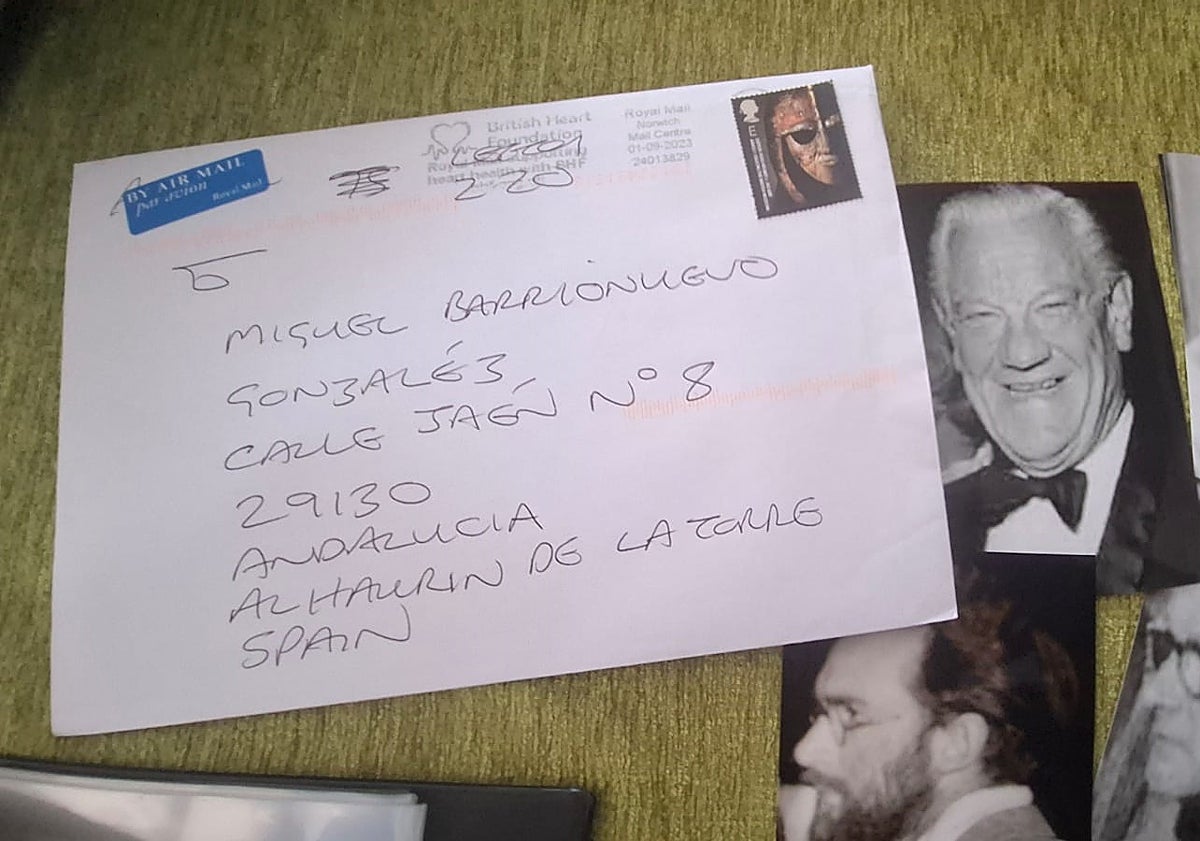 BY AIR MAIL
par avion
Royal Mail
British Heart
Foundation
Royal Mail
Norwich
Mail Centre
01-09-2023
24013829
supporting
heart health with BHF
220
E
MIGUEL BARRIONUEVO
GONZALÉZ
CALLE JAÉN Nº 8
29130
ANDALUCIA
ALHAURIN DE LA TORRE
SPAIN